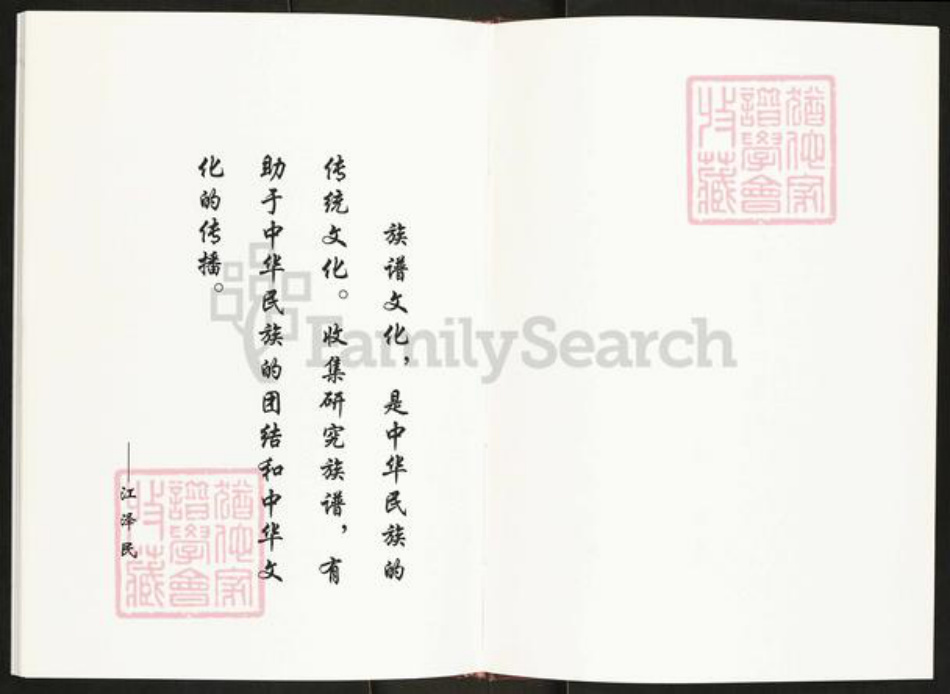 族谱文化，是中华民族的
传统文化。收集研究族谱，有
助于中华民族的团结和中华文
化的传播。
——江泽民
猶他家
譜學會
收藏
猶他家
譜學會
收藏
FamilySearch